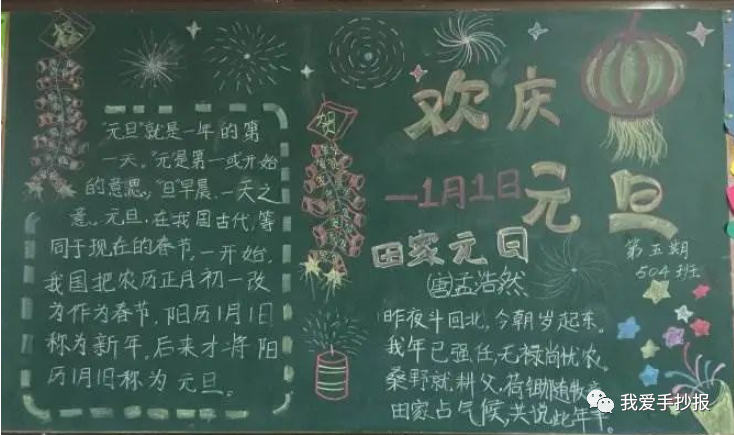 贺
"元旦"就是一年的第
一天。"元"是第一或开始
的意思,"旦"早晨、一天之
意。元旦,在我国古代,等
同于现在的春节,一开始,
我国把农历正月初一改
为作为春节,阳历1月1日
称为新年,后来才将阳
历1月1日称为元旦。
欢庆
—1月1日元旦
田家元日
(唐)孟浩然
昨夜斗回北,今朝岁起东。
我年已强仕,无禄尚忧农。
桑野就耕父,荷锄随牧
田家占气候,共说此年
第五期
504班
我爱手抄报